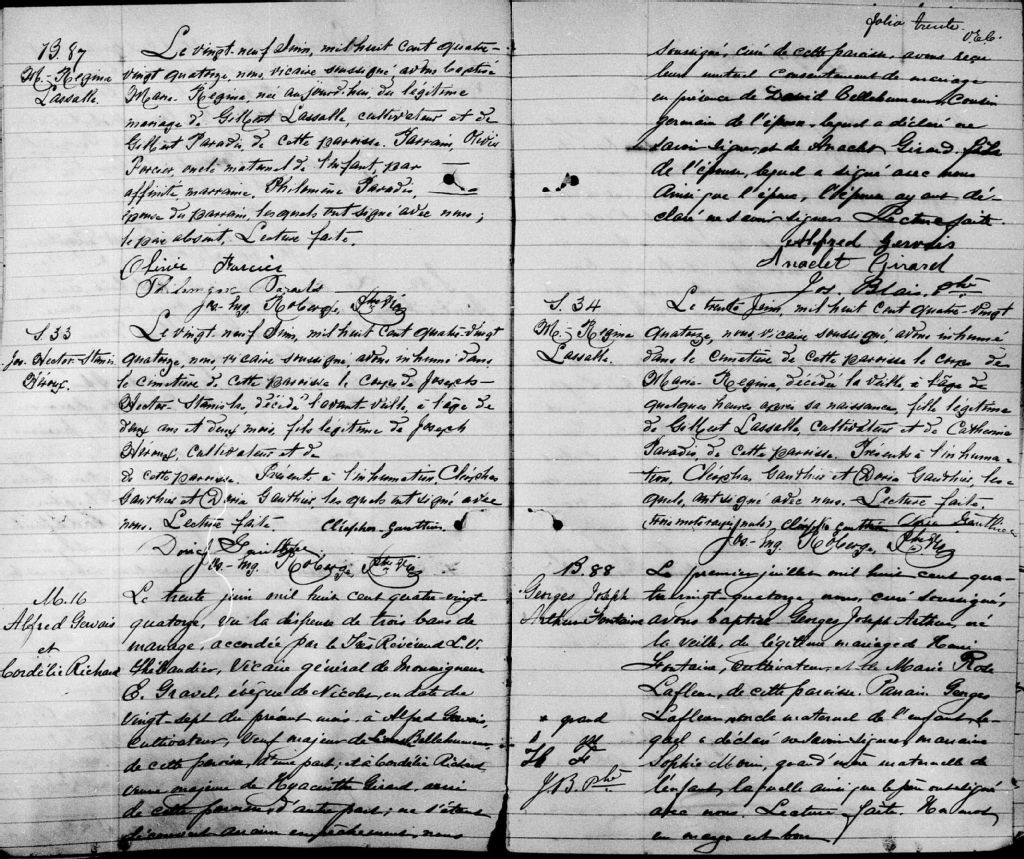 B. 87
M.-Regina
Lassalle.
Le vingt-neuf Juin, mil huit cent quatre-
vingt quatorze, nous, vicaire soussigné avons baptisé
Marie-Regina, née aujourd'hui, du légitime
mariage de Gilbert Lassalle, cultivateur et de
Gilbert Paradis, de cette paroisse. Parrain, Olivier
Forcier, oncle maternel de l'enfant, par
affinité, marraine, Philomène Paradis,
épouse du parrain, lesquels ont signé avec nous;
le père absent. Lecture faite.
Olivier Forcier
Philomène Paradis
Jos.-Ing. Roberge, Ptre Vic.
S. 33
Jos. Hector-Stanis.
Héroux.
Le vingt-neuf Juin, mil huit cent quatre-vingt
quatorze, nous, vicaire soussigné, avons inhumé dans
le cimetière de cette paroisse le corps de Joseph-
Hector-Stanislas, décédé l'avant-veille, à l'âge de
deux ans et deux mois, fils légitime de Joseph
Héroux, cultivateur et de
de cette paroisse. Présents à l'inhumation, Cléophas
Gauthier et Doria Gauthier, lesquels ont signé avec
nous. Lecture faite. Cléophas Gauthier
Doria Gauthier
Jos.-Ing. Roberge, Ptre Vic.
M. 16
Alfred Gervais
et
Cordélie Richard
Le trente juin mil huit cent quatre-vingt-
quatorze, vu la dispense de trois bans de
mariage, accordée par le Très Révérend L. V.
Thibaudier, Vicaire général de Monseigneur
E. Gravel, évêque de Nicolet, en date du
vingt sept du présent mois, à Alfred Gervais,
cultivateur, veuf majeur de Bellehumeur,
de cette paroisse, d'une part; et à Cordélie Richard
veuve majeure de Hyacinthe Girard, aussi
de cette paroisse, d'autre part; ne s'étant
découvert aucun empêchement, nous
folio trente
soussigné, curé de cette paroisse, avons reçu
leur mutuel consentement de mariage
en présence de David Bellehumeur, cousin
germain de l'époux, lequel a déclaré ne
savoir signer, et de Anaclet Girard, fils
de l'épouse, lequel a signé avec nous
ainsi que l'époux, l'épouse ayant dé-
claré ne savoir signer. Lecture faite.
Alfred Gervais
Anaclet Girard
Jos. Blais, ptre
S. 34
M.-Regina
Lassalle.
Le trente Juin, mil huit cent quatre-vingt
quatorze, nous vicaire soussigné, avons inhumé
dans le cimetière de cette paroisse le corps de
Marie-Regina, décédée la veille, à l'âge de
quelques heures après sa naissance, fille légitime
de Gilbert Lassalle, cultivateur et de Catherine
Paradis, de cette paroisse. Présents à l'inhuma-
tion, Cléophas Gauthier et Doria Gauthier, les-
quels, ont signé avec nous. Lecture faite.
(trois mots rayés nuls) Cléophas Gauthier Doria Gauthier
Jos.-Ing. Roberge, Ptre Vic.
B. 88
Georges Joseph
Arthur Fontaine
Le premier juillet mil huit cent qua-
tre-vingt quatorze, nous, curé soussigné,
avons baptisé Georges Joseph Arthur, né
la veille, du légitime mariage de
Fontaine, cultivateur, et de Marie Rose
Lafleur, de cette paroisse. Parrain Georges
Lafleur, oncle maternel de l'enfant, le-
quel a déclaré ne savoir signer, marraine
Sophie Morin, grand'mère maternelle de
l'enfant, laquelle ainsi que le père ont signé
avec nous. Lecture faite.
en marge est bon
* grand
J.B. Ptre